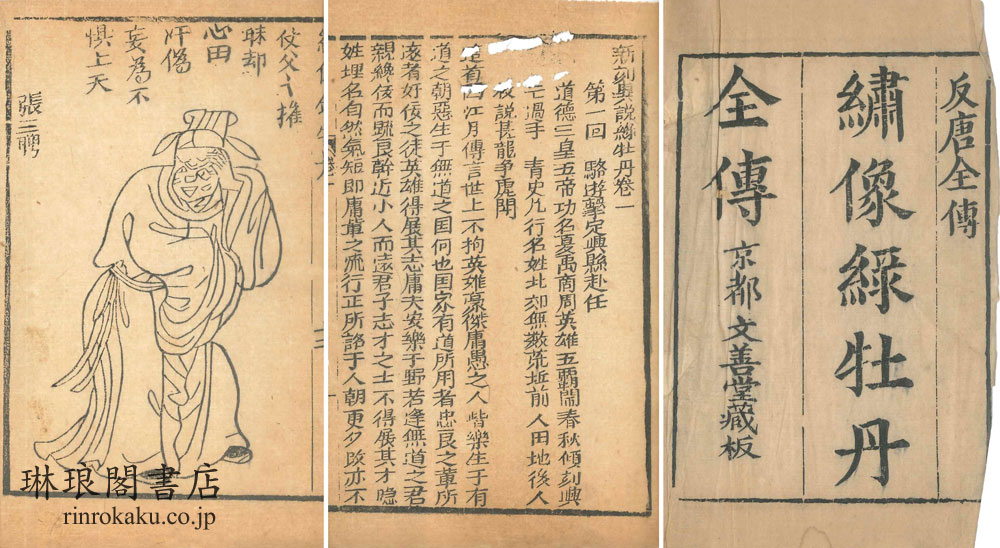 反唐全傳
繡像綠牡丹
全傳 京都文善堂藏板
新刻異說綠牡丹卷一
第一回 駱遊擊定興縣赴任
道德三皇五帝功名夏禹商周英雄五霸閙春秋傾刻興
亡過手 青史凢行名姓北邙無数荒坵前人田地後人
說甚龍争虎閗
首西江月傳言世上不拘英雄豪傑庸愚之人皆樂生于有
道之朝惡生于無道之国何也囯家有道所用者忠良之輩所
遠者奸佞之徒英雄得展其志庸夫安樂于野若逢無道之君
親纔佞而踈良幹近小人而遠君子志才之士不得展其才隐
姓埋名自然氣短即庸輩之流行正所謂于人朝更夕改亦不
仗父之權
昧却
心田
奸偽
妄為不
惧上天
張三聘
琳琅閣書店
rinrokaku.co.jp